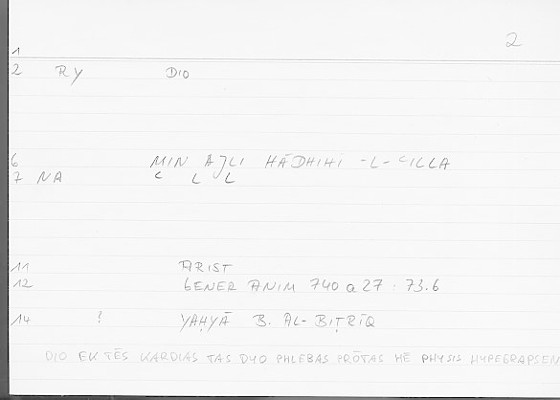 2
1
2 RY DIO
6 MIN AJLI HĀDHIHI -L-ʿILLA
7 NA C L L
11 ARIST
12 GENER ANIM 740 a 27 : 73.6
14 ! YAḤYĀ B. AL-BIṬRĪQ
DIO EK TĒS KARDIAS TAS DYO PHLEBAS PRŌTAS HĒ PHYSIS HYPEGRAPSEN